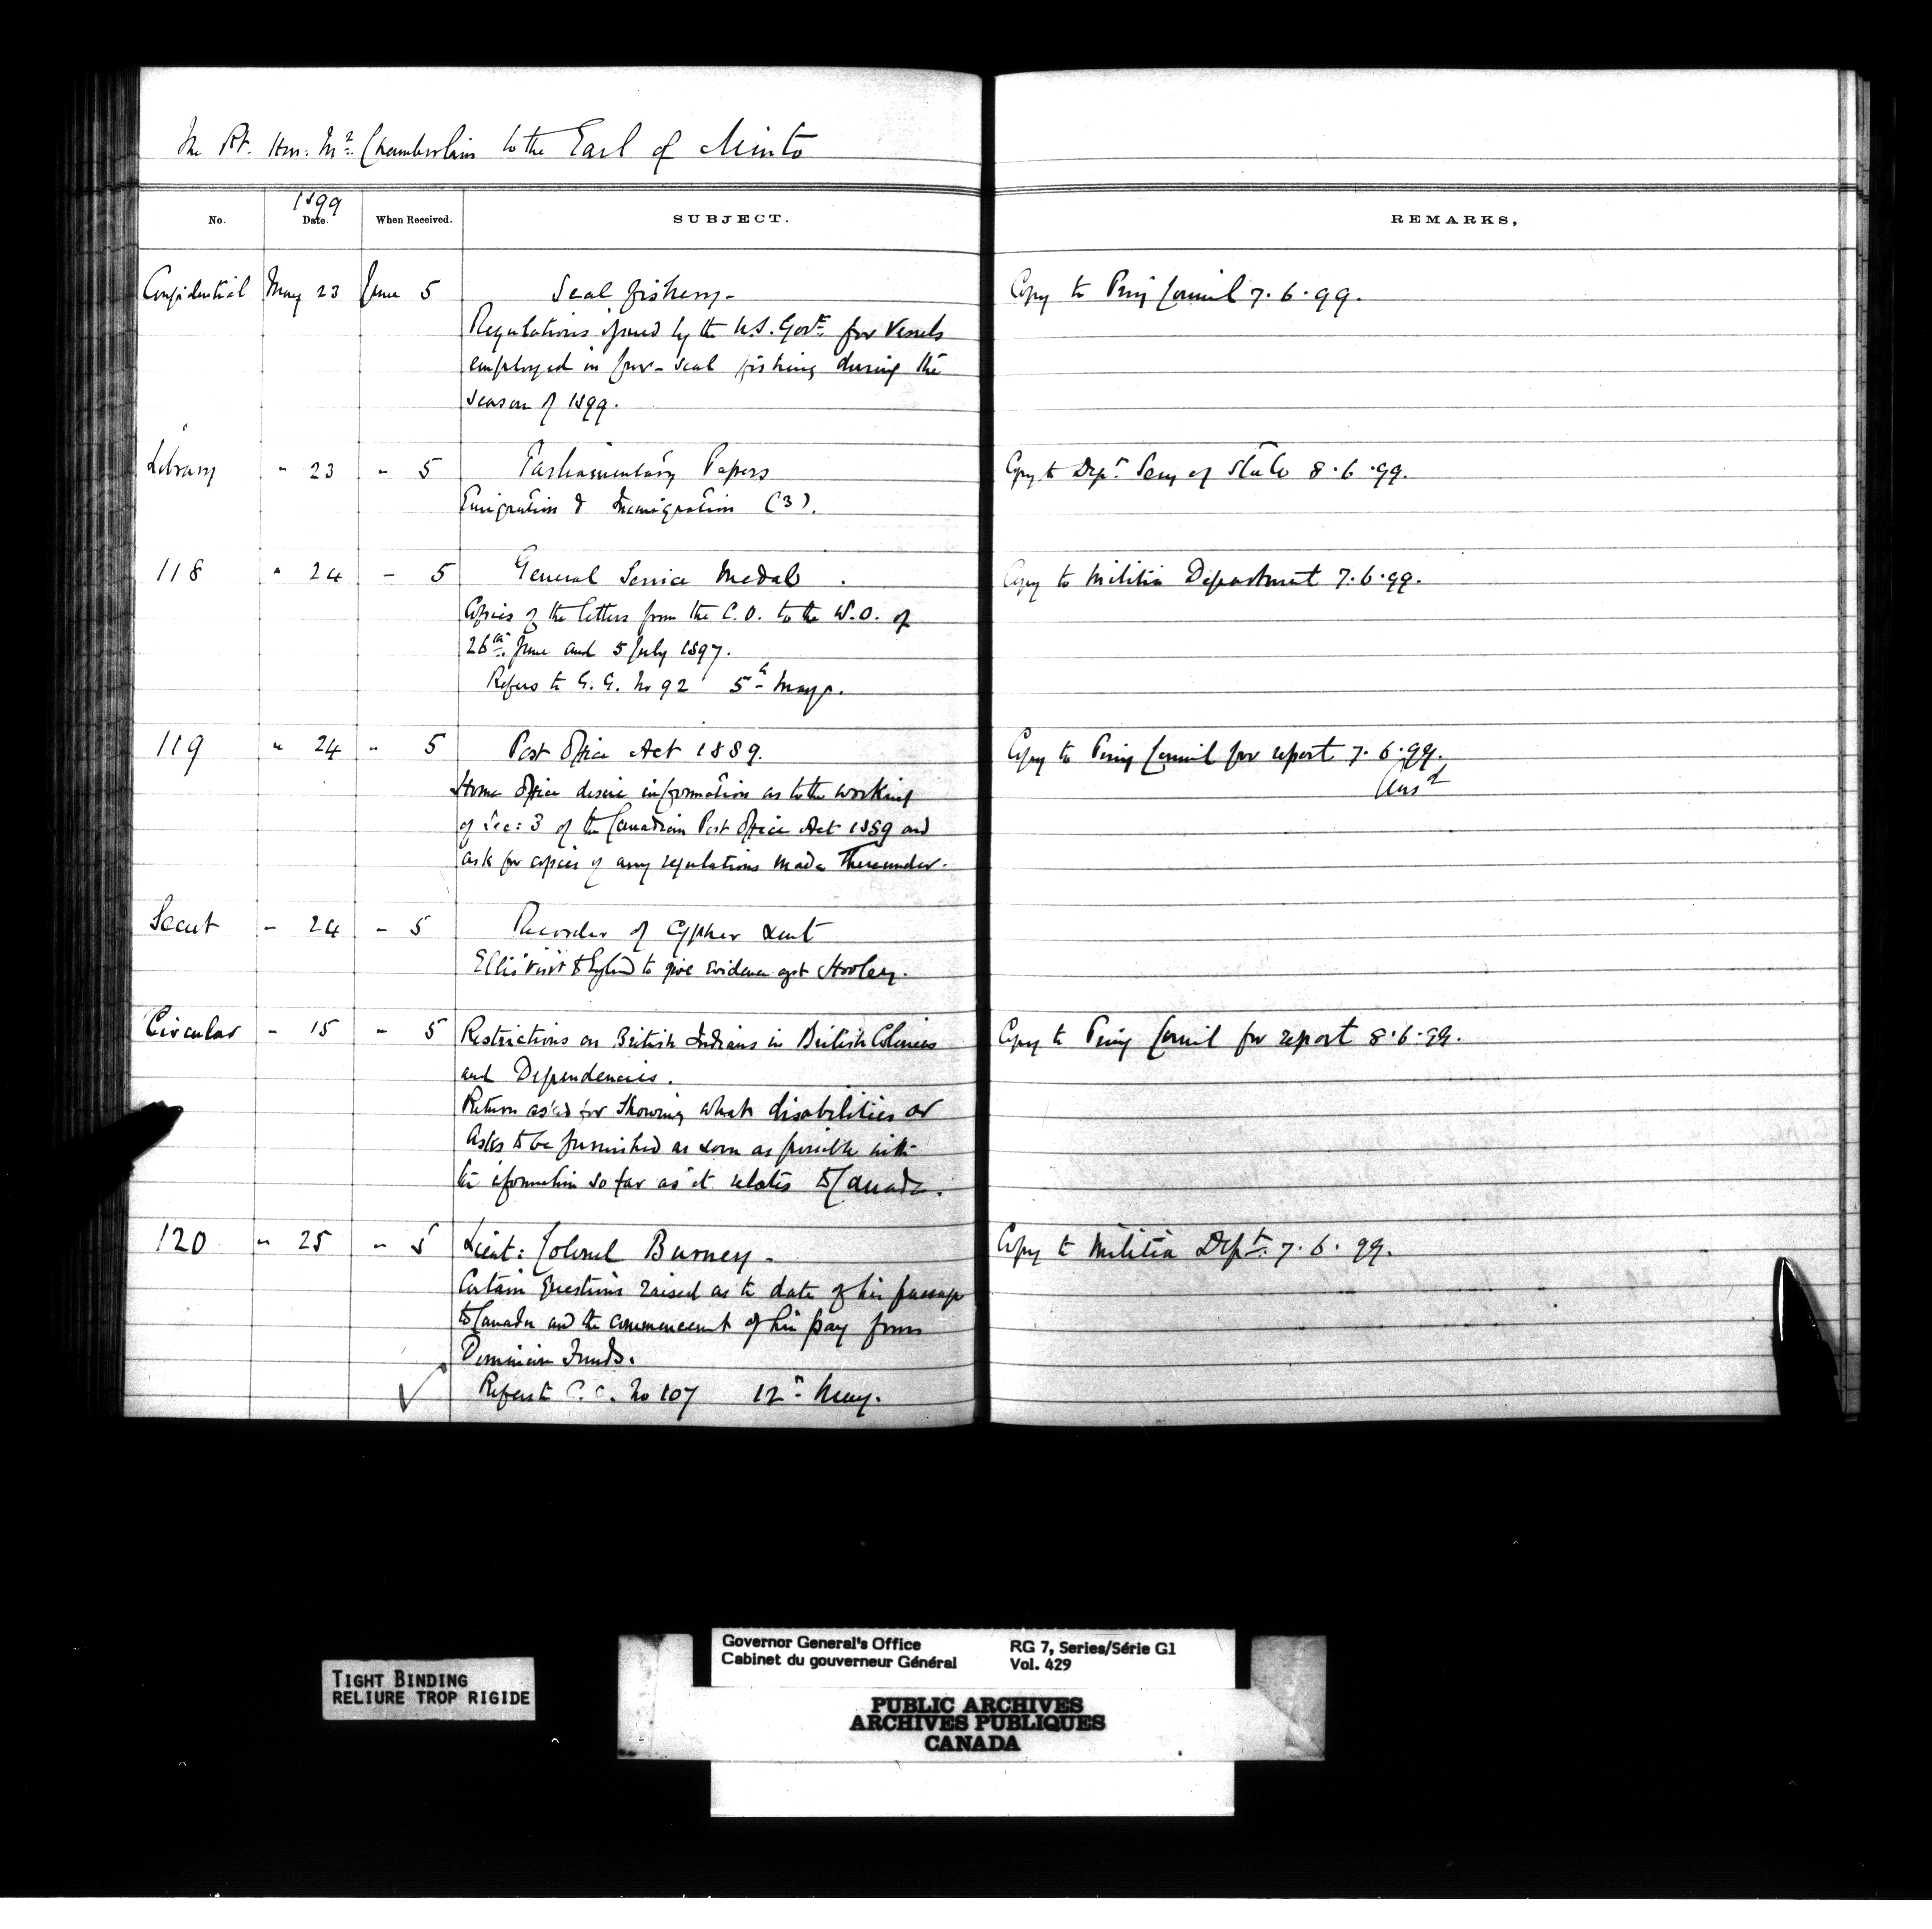 The Rt. Hon. Mr. Chamberlain to the Earl of Minto
No. 1899 Date. When Received. SUBJECT. REMARKS,
Confidential May 23 June 5 Seal fishery - Copy to Privy Council 7.6.99.
Regulations issued by the U.S. Govt. for Vessels
employed in fur-seal fishing during the
season of 1899.
Library " 23 " 5 Parliamentary Papers Copy to Dept. Secy of State 8.6.99.
Emigration & Immigration (3).
118 " 24 - 5 General Service Medal. Copy to Militia Department 7.6.99.
Copies of the letters from the C.O. to the W.O. of
26th June and 5 July 1897.
Refers to G.G. No 92 5th May.
119 " 24 " 5 Post Office Act 1889. Copy to Privy Council for report 7.6.99.
Ansd
Home Office desire information as to the working
of Sec: 3 of the Canadian Post Office Act 1889 and
ask for copies of any regulations made thereunder.
Secret - 24 - 5 of Cypher sent
Ellis' visit to England to give evidence agst Hooley.
Circular - 15 - 5 Restrictions on British Indians in British Colonies Copy to Privy Council for report 8.6.99.
and Dependencies.
Return asked for showing what disabilities or
Asks to be furnished as soon as possible with
the information so far as it relates to Canada.
120 " 25 " 5 Lieut: Colonel Burney - Copy to Militia Dept. 7.6.99.
Certain questions raised as to date of his passage
to Canada and the commencement of his pay from
Dominion Funds.
Refers to No 107 12th May.
TIGHT BINDING
RELIURE TROP RIGIDE
Governor General's Office RG 7, Series/Série G1
Cabinet du gouverneur Général Vol. 429
PUBLIC ARCHIVES
ARCHIVES PUBLIQUES
CANADA